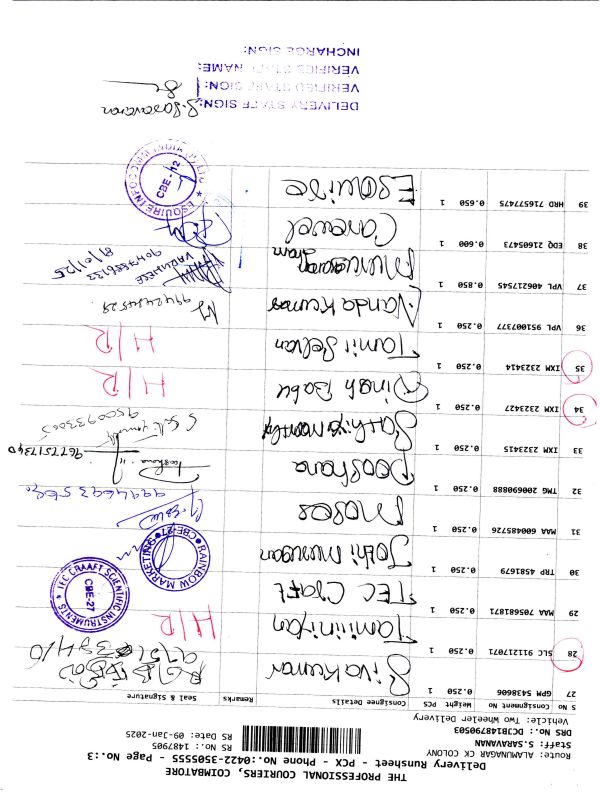 THE PROFESSIONAL COURIERS, COIMBATORE
Delivery Runsheet - PCX - Phone No.:0422-3505555 - Page No.:3
Route: ALAMUNAGAR CK COLONY
Staff: S.SARAVANAN
DRS No.: DCJB148790503
Vehicle: Two Wheeler Delivery
RS No.: 1487905
RS Date: 09-Jan-2025
S No Consignment No Weight PCS Consignee Details Remarks Seal & Signature
27 GPM 5438606 0.250 1 Siva Kumar
28 SLC 911217071 0.250 1 Tamiliniyan H/R
29 MAA 705681871 0.250 1 TEC Craft
TEC CRAAFT SCIENTIFIC INSTRUMENTS CBE-27
30 TRP 4581679 0.250 1 Jothi Murugan
RAINBOW MARKETING CBE-27
31 MAA 600485726 0.250 1 Moses
32 TMG 200690888 0.250 1 Pooshana
33 IXM 2323415 0.250 1 Sathiyamoorthy 9500933005
9677517340
34 IXM 2323427 0.250 1 Dinesh Babu H/R
35 IXM 2323414 0.250 1 Tamil Selvan H/R
36 VPL 951007377 0.250 1 Nanda Kumar
37 VPL 406217545 0.850 1 Murugan
8/01/25
38 EDQ 21605473 0.600 1
39 HRD 716577475 0.650 1 Esquire
ESQUIRE INFOCOM INDIA CBE-12
DELIVERY STAFF SIGN: S.Saravanan
VERIFIED STAFF SIGN:
VERIFIED STAFF NAME:
INCHARGE SIGN: